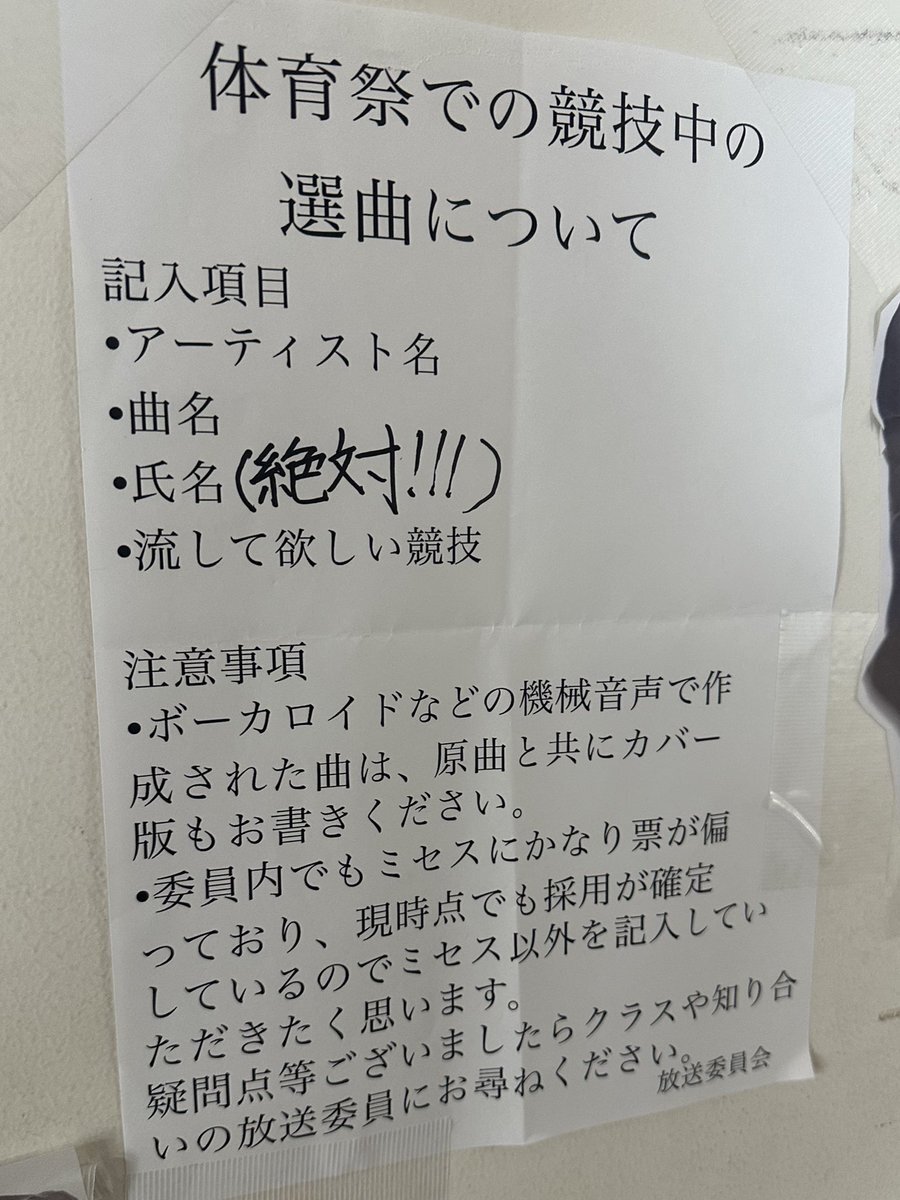 体育祭での競技中の
選曲について
記入項目
•アーティスト名
•曲名
•氏名(絶対!!!)
•流して欲しい競技
注意事項
•ボーカロイドなどの機械音声で作
成された曲は、原曲と共にカバー
版もお書きください。
•委員内でもミセスにかなり票が偏
っており、現時点でも採用が確定
しているのでミセス以外を記入してい
ただきたく思います。
疑問点等ございましたらクラスや知り合
いの放送委員にお尋ねください。
放送委員会